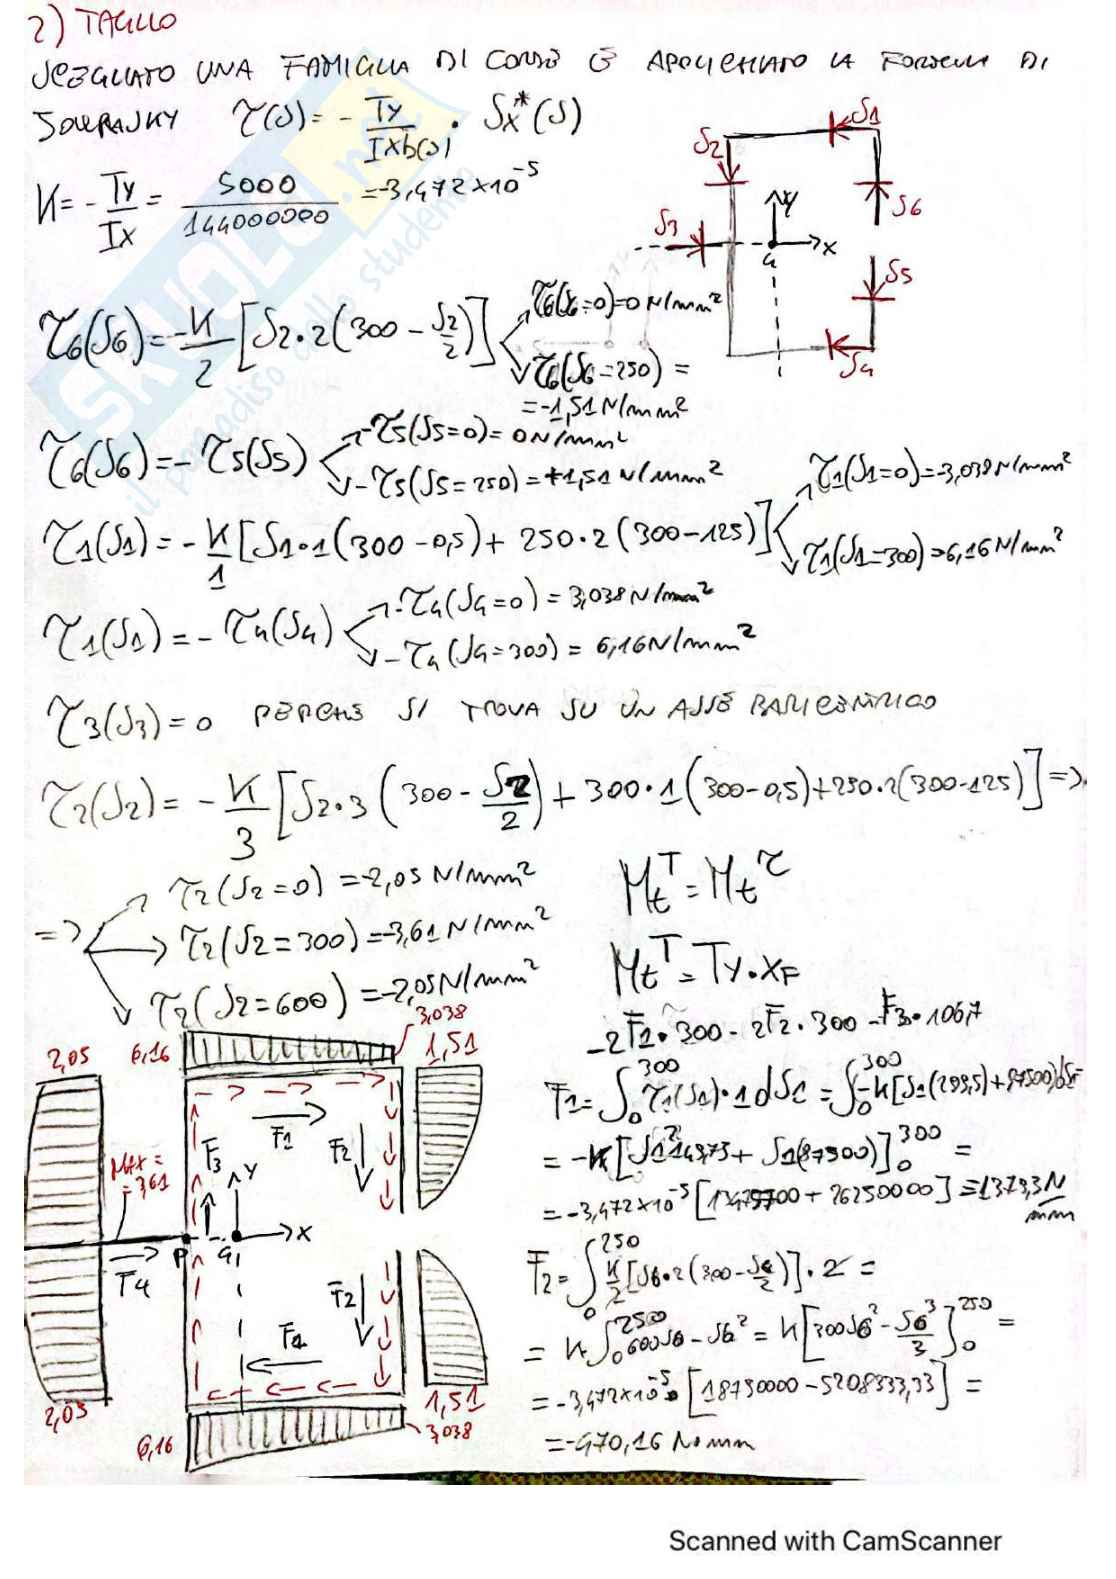 2) TAGLIO
SCEGLIAMO UNA FAMIGLIA DI CORDE E APPLICHIAMO LA FORMULA DI
JOURASKY τ(S) = - Ty/(Ix b(s)) · Sx*(S)
K = - Ty/Ix = 5000/144000000 = -3,472×10^-5
S1
S2
S6
S3
y
x
G
S5
S4
τ6(S6) = -K/2 [S2·2(300 - S2/2)]
τ6(S6=0)=0 N/mm²
τ6(S6=250) =
= -1,51 N/mm²
τ6(S6) = - τ5(S5)
-τ5(S5=0)= 0 N/mm²
-τ5(S5=250) = +1,51 N/mm²
τ1(S1) = -K/1 [S1·1(300-0,5) + 250·2(300-125)]
τ1(S1=0)=3,038 N/mm²
τ1(S1=300) =6,16 N/mm²
τ1(S1) = - τ4(S4)
-τ4(S4=0) = 3,038 N/mm²
-τ4(S4=300) = 6,16 N/mm²
τ3(S3) = 0 PERCHE SI TROVA SU UN ASSE BARICENTRICO
τ2(S2) = -K/3 [S2·3(300 - S2/2) + 300·1(300-0,5)+250·2(300-125)] =>
=> τ2(S2=0) = -2,05 N/mm²
τ2(S2=300) = -3,61 N/mm²
τ2(S2=600) = -2,05 N/mm²
Mt^T = Mt^τ
Mt^T = Ty·XF
-2F1·300 - 2F2·300 - F3·106,7
F1 = ∫0^300 τ1(S1)·1 dS1 = ∫0^300 -K[S1(299,5)+87500] dS=
= -K[S1² 149,75 + S1(87500)]0^300 =
= -3,472×10^-5 [13477500 + 26250000] = 1379,3 N/mm
F2 = ∫0^250 K/2 [S6·2(300 - S6/2)]·2 =
= K∫0^250 600S6 - S6² = K[300S6² - S6³/3]0^250 =
= -3,472×10^-5 [18750000 - 5208333,33] =
= -470,16 N·mm
2,05
6,16
3,038
1,51
MAX = 3,61
F1
F2
F3
y
x
P
G
F4
F2
F1
2,05
6,16
1,51
3,038
SKUOLA.net
il paradiso dello studente
Scanned with CamScanner